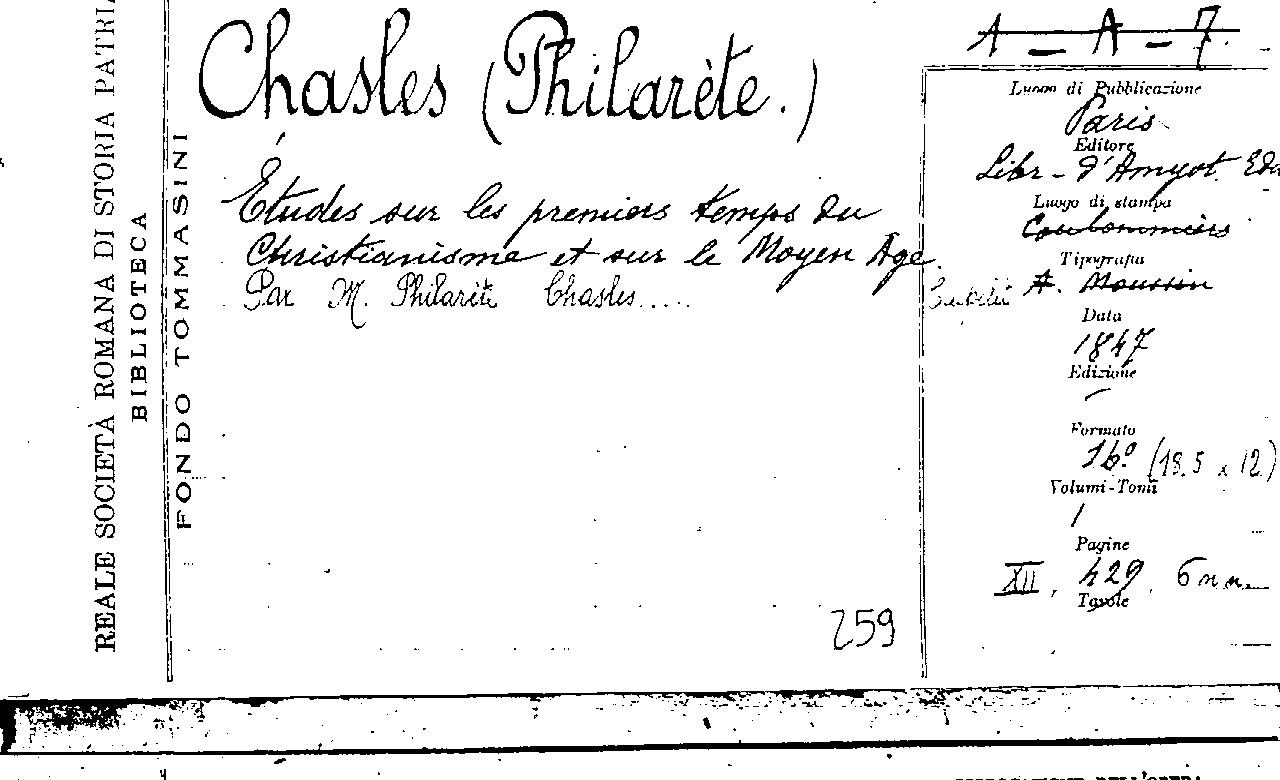 REALE SOCIETÀ ROMANA DI STORIA PATRI
BIBLIOTECA
FONDO TOMMASINI
Chasles (Philarète.)
Études sur les premiers temps du
Christianisme et sur le Moyen Age.
Par M. Philarète Chasles.....
259
1 - A - 7.
Luogo di Pubblicazione
Paris
Editore
Libr - d'Amyot. Edi
Luogo di stampa
Coulommiers
Tipografia
A. Moussin
Data
1847
Edizione
Formato
16º (18.5 x 12)
Volumi-Tomi
1
Pagine
XII, 429. 6 n n.
Tavole